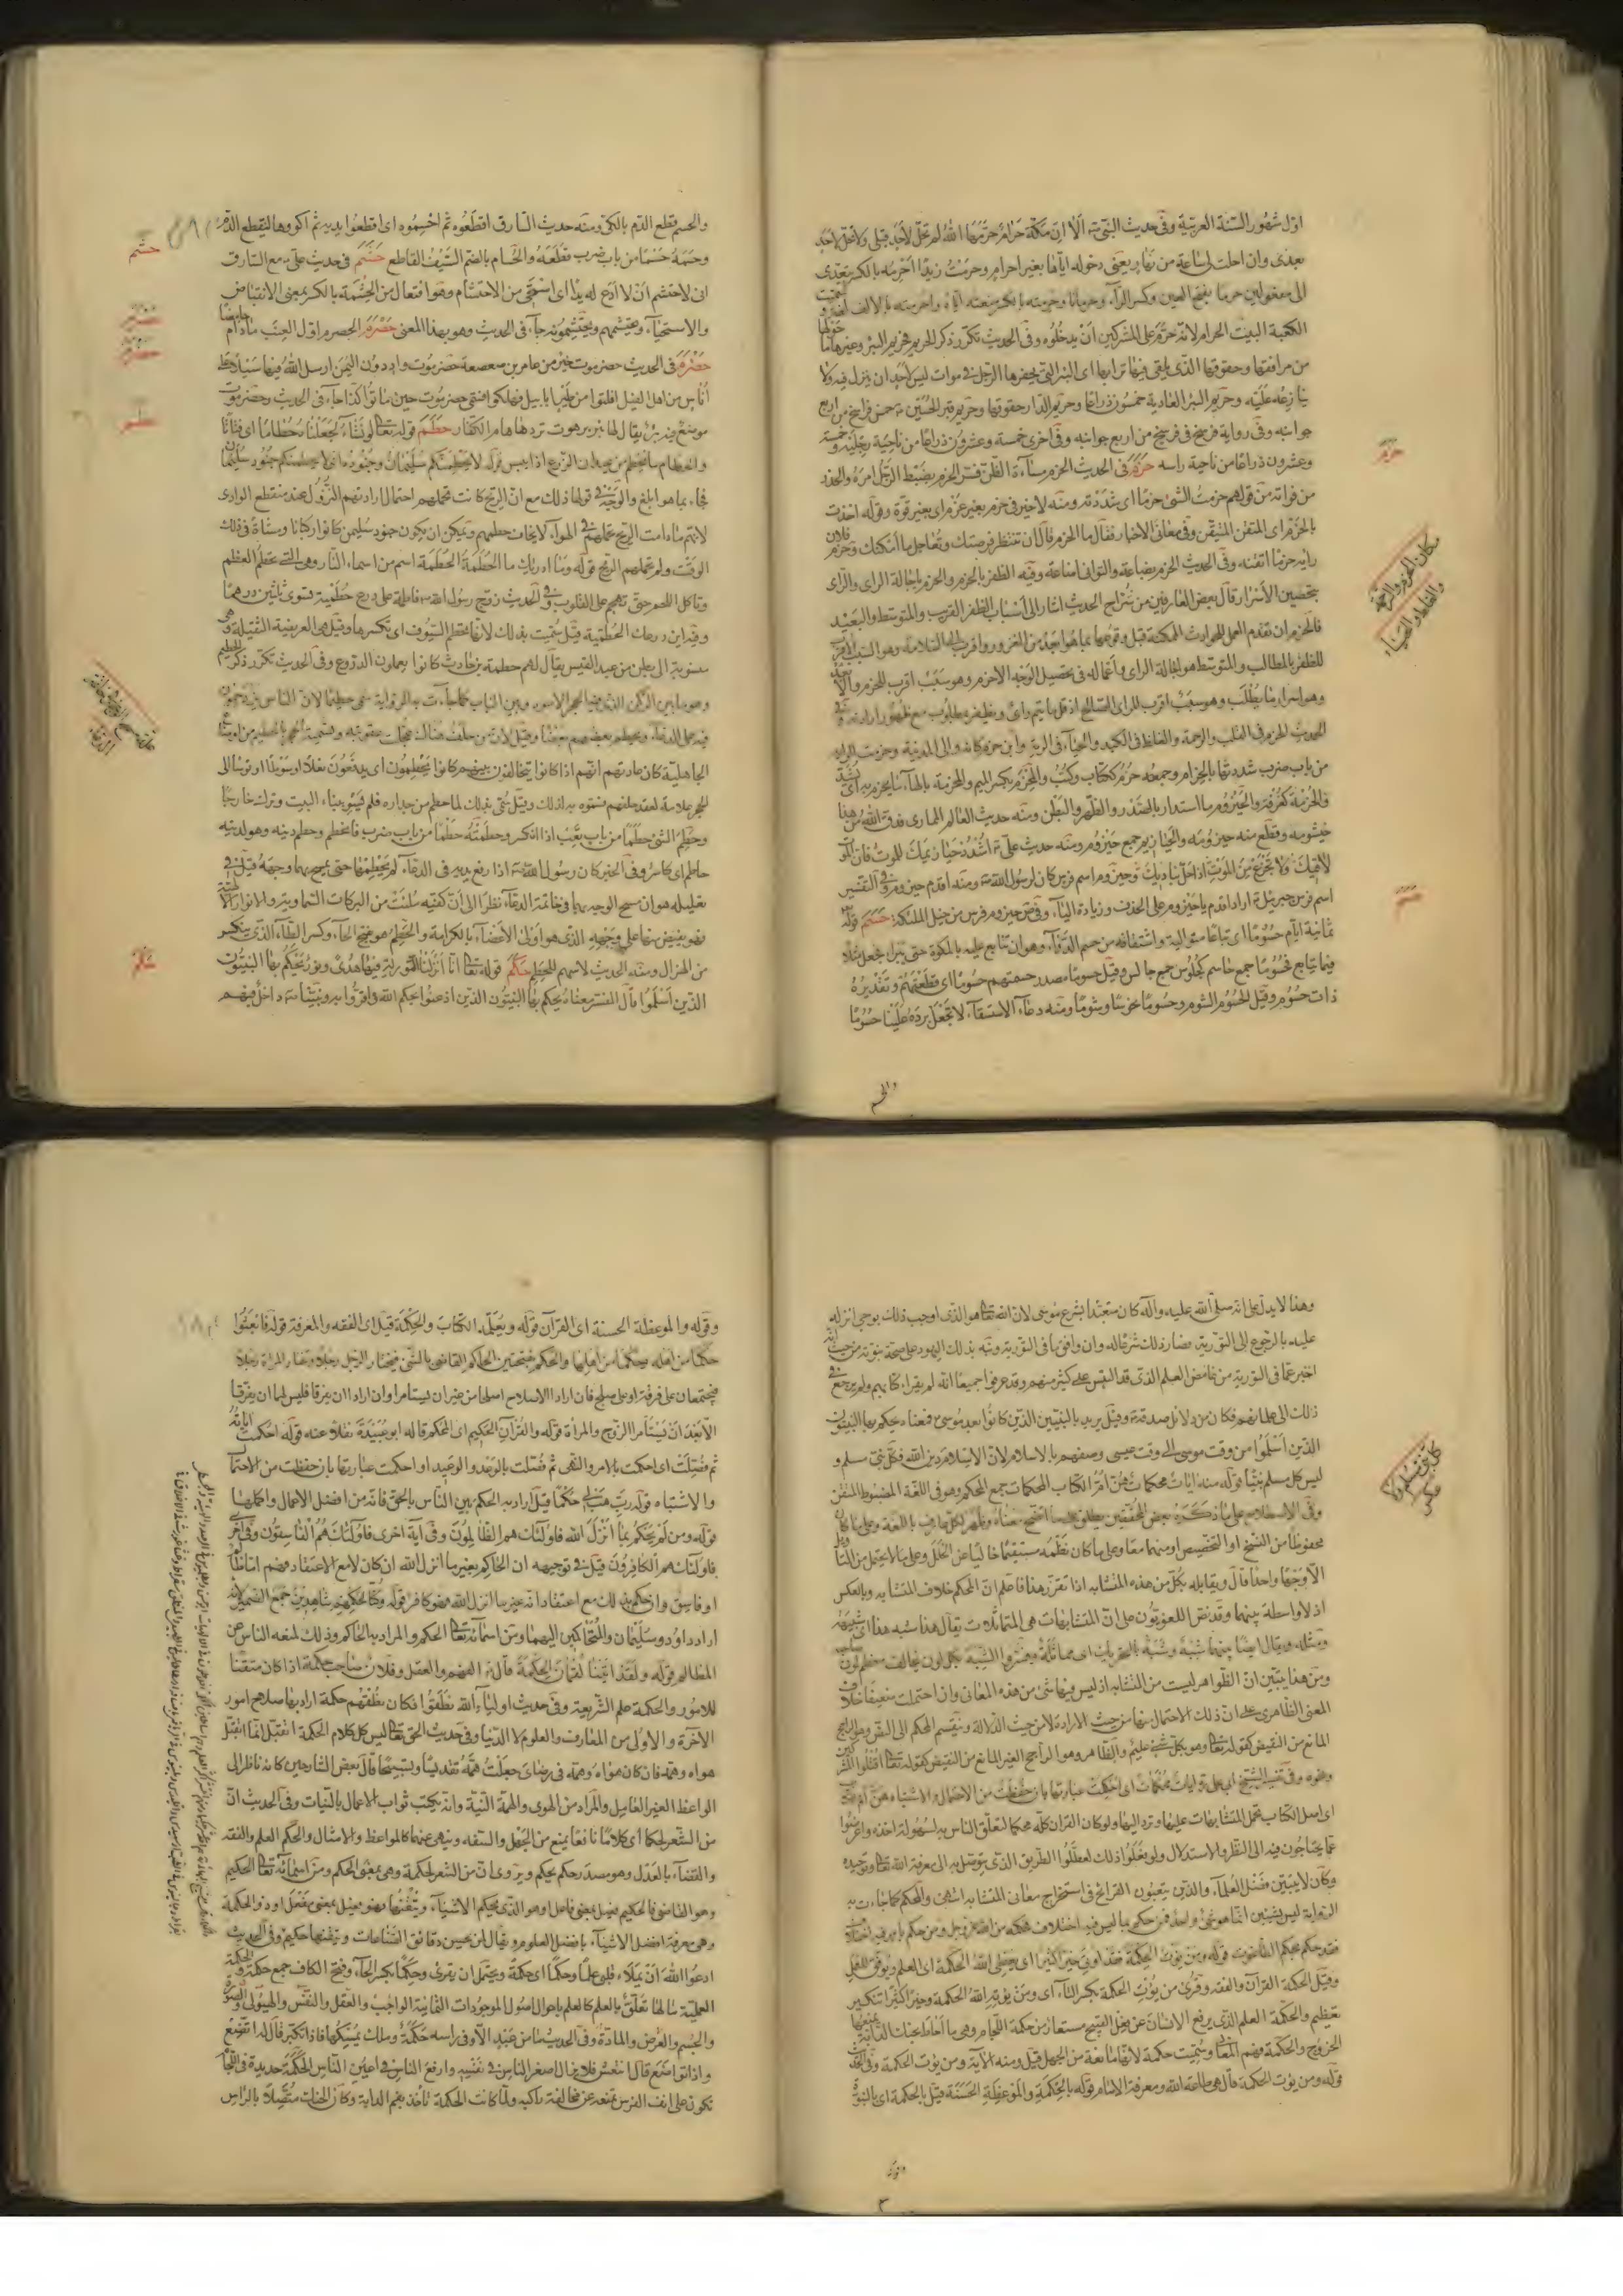 اول شهور السنة العربية وفى حديث النبى ص الا ان مكة حرام حرمها الله لم تحل لاحد قبلى ولا تحل لاحد
بعدى وان احلت لى ساعة من نهار يعنى دخوله اياها بغير احرام وحرمت زيدا احرمه بالكسر يتعدى
الى مفعولين حرما بفتح العين وكسر الراء وحرمانا وحرمته بالكسر منعته اياه واحرمته بالالف لغة
الكعبة البيت الحرام لانه حرم على المشركين ان يدخلوه وفى الحديث تكرر ذكر الحريم كحريم البئر وغيرها
من مرافقها وحقوقها الذى يلقى فيها ترابها اى البئر التى يحفرها الرجل فى موات ليس لاحد ان ينزل فيه ولا
ينازعه عليه وحريم البئر العادية خمسون ذراعا وحريم الدار حقوقها وحريم قبر الحسين ع خمس فراسخ من اربع
جوانبه وفى رواية فرسخ فى فرسخ من اربع جوانبه وفى اخرى خمسة وعشرون ذراعا من ناحية رجليه وخمسة
وعشرون ذراعا من ناحية راسه حزم فى الحديث الحزم مساءة الظن فسر الحزم بضبط الرجل امره والحذر
من فواته من قولهم حزمت الشئ حزما اى شددته ومنه لا خير فى حزم بغير عزم اى بغير قوة وقوله اخذت
بالحزم اى المتقن المتيقن وفى معانى الاخبار فقال ما الحزم قال ان تنتظر فرصتك وتعاجل ما امكنك وحزم فلان
رايه حزما اتقنه وفى الحديث الحزم بضاعة والتوانى اضاعة وفيه الظفر بالحزم والحزم باجالة الراى والراى
بتحصين الاسرار قال بعض العارفين من شراح الحديث اشار الى اسباب الظفر القريب والمتوسط والبعيد
فالحزم ان تقدم العمل للحوادث الممكنة قبل وقوعها بما هو ابعد من الغرور واقرب الى السلامة وهو السبب الاقرب
للظفر بالمطالب والمتوسط هو اجالة الراى واعماله فى تحصيل الوجه الاحزم وهو سبب اقرب للحزم والابعد
وهو اسرار ما يطلب وهو سبب اقرب للراى الصالح اذ قل ما يتم راى ويظفر بمطلوب مع ظهور ارادته وفى
الحديث الحزم فى القلب والرحمة والغلظ فى الكبد والحياء فى الرية
من باب ضرب شددتها بالحزام وجمعه حزم ككتاب وكتب والمحزم بكسر الميم والمحزمة بالهاء ما يحزم به اى يشد
والحزمة كغرفة والحيزوم ما استدار بالصدر والظهر والبطن ومنه حديث العالم الممارى فدق الله من هذا
خيشومه وقطع منه حيزومه والحيازيم جمع حيزوم ومنه حديث على ع اشدد حيازيمك للموت فان الموت
لاقيك ولا تجزع من الموت اذا حل بناديك وحيزوم اسم فرس كان لرسول الله ص ومنه اقدم حيزوم وفى التفسير
اسم فرس جبرئيل ع اراد اقدم يا حيزوم على الحذف وزيادة الياء وفى ص حيزوم فرس من خيل الملئكة حسم قوله
ثمانية ايام حسوما اى تباعا متوالية واشتقاقه من حسم الداء وهو ان تتابع عليه بالمكواة حتى يبرا فجعل مثلا
فيما يتابع فحسوما جمع حاسم كجلوس جمع جالس وقيل حسوما مصدر حسمتهم حسوما اى قطعتهم وتقديره
ذات حسوم وقيل الحسوم الشوم وحسوما نحوسا وشوما ومنه دعاء الاستسقاء لا تجعل برده علينا حسوما
والحسم
حزم
مكان الحزم والرحمة
والغلظ والحياء
حسم
والحسم قطع الدم بالكى ومنه حديث السارق اقطعوه ثم احسموه اى اقطعوا يديه ثم اكووها لينقطع الدم
وحسمه حسما من باب ضرب قطعه والحسام بالضم السيف القاطع حشم فى حديث على ع مع السارق
انى لاحتشم ان لا ادع له يدا اى استحيى من الاحتشام وهو افتعال من الحشمة بالكسر بمعنى الانقباض
والاستحياء ويحتشمهم ويحتشمونه جاء فى الحديث وهو بهذا المعنى حصرم الحصرم اول العنب ما دام حامضا
حضرم فى الحديث حضرموت خير من عامر بن صعصعة حضرموت واد دون اليمن ارسل الله فيها سيلا على
اناس من اهل الفيل افلتوا من طير ابابيل فهلكوا فسمى حضرموت حين ماتوا كذا جاء فى الحديث وحضرموت
موضع فيه بئر يقال لها بئر برهوت تردها هام الكفار حطم قوله تعالى لو نشاء لجعلناه حطاما اى فتاتا
والحطام ما يحطم من عيدان الزرع اذا يبس قوله لا يحطمنكم سليمان وجنوده اى لا يحطمنكم جنود سليمان
فجاء بما هو ابلغ والوجه فى قولها ذلك مع ان الريح كانت تحملهم احتمال ارادتهم النزول عند منقطع الوادى
لانهم ما دامت الريح تحملهم فى الهواء لا يخاف حطمهم ويمكن ان يكون جنود سليمن كانوا ركبانا ومشاة فى ذلك
الوقت ولم تحملهم الريح قوله وما ادريك ما الحطمة الحطمة اسم من اسماء النار وهى التى تحطم العظم
وتاكل اللحم حتى تهجم على القلوب وفى الحديث زوج رسول الله ص فاطمة على درع حطمية تسوى ثلثين درهما
وفيه اين درعك الحطمية قيل سميت بذلك لانها تحطم السيوف اى تكسرها وقيل هى العريضة الثقيلة وهى
منسوبة الى بطن من عبد القيس يقال لهم حطمة بن حادث كانوا يعملون الدروع وفى الحديث تكرر ذكر الحطيم
وهو ما بين الركن الذى فيه الحجر الاسود وبين الباب كما جاءت به الرواية سمى حطيما لان الناس يزدحمون
فيه على الدعاء ويحطم بعضهم بعضا وقيل لان من حلف هناك عجلت عقوبته وتسمية الحجر بالحطيم من اوضاع
الجاهلية كان عادتهم انهم اذا كانوا يتحالفون بينهم كانوا يحطمون اى يدفعون نعلا او سوطا او قوسا الى
الحجر علامة لعقد حلفهم فسموه به لذلك وقيل سمى بذلك لما حطم من جداره فلم يسو ببناء البيت وترك خارجا
وحطم الشئ حطما من باب تعب اذا انكسر وحطمته حطما من باب ضرب فانحطم وحطم دينه وهو لدينه
حاطم اى كاسر وفى الخبر كان رسول الله ص اذا رفع يديه فى الدعاء لم يحطهما حتى يمسح بهما وجهه قيل فى
تعليله هو ان مسح الوجه بهما فى خاتمة الدعاء نظرا الى ان كفيه ملئت من البركات السماوية والانوار الالهية
فهو يفيض منها على وجهه الذى هو اولى الاعضاء بالكرامة والحطم هو بفتح الحاء وكسر الطاء الذى ينكسر
من الهزال ومنه الحديث لا سهم للحطم حكم قوله تعالى انا انزلنا التورية فيها هدى ونور يحكم بها النبيون
الذين اسلموا قال المفسر معناه يحكم بها النبيون الذين اذعنوا بحكم الله واقروا به ونبينا ص داخل فيهم
حشم
حصرم
حضرم
حطم
حكم
وهذا لا يدل على انه صلى الله عليه وآله كان متعبدا بشرع موسى لان الله تعالى هو الذى اوجب ذلك بوحى انزله
عليه بالرجوع الى التورية فصار ذلك شرعا له وان وافق ما فى التورية ونبه بذلك اليهود على صحة نبوته من حيث انه
اخبر عما فى التورية من غامض العلم الذى قد التبس على كثير منهم وقد عرفوا جميعا انه لم يقرا كتابهم ولم يرجع فى
ذلك الى علمائهم فكان من دلائل صدقه ص وقيل يريد بالنبيين الذين كانوا بعد موسى ع فمعناه يحكم بها النبيون
الذين اسلموا من وقت موسى الى وقت عيسى وصفهم بالاسلام لان الاسلام دين الله فكل نبى مسلم و
ليس كل مسلم نبيا قوله منه ايات محكمات هن ام الكتاب المحكمات جمع المحكم وهو فى اللغة المضبوط المتقن
وفى الاصطلاح على ما ذكره بعض المحققين يطلق على ما اتضح معناه وظهر لكل عارف باللغة وعلى ما كان
محفوظا من النسخ او التخصيص او منهما معا وعلى ما كان نظمه مستقيما خاليا عن الخلل وعلى ما لا يحتمل من التاويل
الا وجها واحدا قال ويقابله بكل من هذه المتشابه اذا تقرر هذا فاعلم ان المحكم خلاف المتشابه وبالعكس
اذ لا واسطة بينهما وقد نص اللغويون على ان المتشابهات هى المتماثلات يقال هذا شبه هذا اى شبيهه
ومثله ويقال ايضا بينهما شبه وشبه بالتحريك اى مماثلة وفسروا الشبه بكل لون يخالف معظم لون صاحبه
ومن هذا يتبين ان الظواهر ليست من المتشابه اذ ليس فيها شئ من هذه المعانى وان احتملت ضعيفا خلاف
المعنى الظاهرى على ان ذلك الاحتمال فيها من حيث الارادة لا من حيث الدلالة وينقسم المحكم الى النص وهو الراجح
المانع من النقيض كقوله تعالى وهو بكل شئ عليم والظاهر وهو الراجح الغير المانع من النقيض كقوله تعالى اقتلوا المشركين
ونحوه وفى تفسير الشيخ ابى على ره ايات محكمات اى احكمت عبارتها بان حفظت من الاحتمال والاشتباه هن ام الكتاب
اى اصل الكتاب تحمل المتشابهات عليها وترد اليها ولو كان القران كله محكما لتعلق الناس به لسهولة اخذه واعرضوا
عما يحتاجون فيه الى النظر والاستدلال ولو فعلوا ذلك لعطلوا الطريق الذى يتوصل به الى معرفة الله تعالى وتوحيده
وكان لا يتبين فضل العلماء والذين يتعبون القرائح فى استخراج معانى المتشابه انتهى والمحكم كما جاءت به
الرواية ليس بشيئين انما هو شئ واحد فمن حكم بما ليس فيه اختلاف فحكمه من الله عز وجل ومن حكم بامر فيه اختلاف
فقد حكم بحكم الطاغوت قوله ومن يؤت الحكمة فقد اوتى خيرا كثيرا اى يعطى الله الحكمة اى العلم ويوفق للعمل
وقيل الحكمة القرآن والفقه وقرئ من يؤت الحكمة بكسر التاء اى ومن يؤتيه الله الحكمة وخيرا كثيرا تنكير
تعظيم والحكمة العلم الذى يرفع الانسان عن فعل القبيح مستعار من حكمة اللجام وهى ما احاط بحنك الدابة يمنعها
الخروج والحكمة وفهم المعانى وسميت حكمة لانها مانعة من الجهل قيل ومنه الآية ومن يؤت الحكمة وفى الحديث
قوله ومن يؤت الحكمة قال هى طاعة الله ومعرفة الامام قوله بالحكمة والموعظة الحسنة قيل بالحكمة اى بالنبوة
وقوله
كل نبى مسلم دون
عكس
وقوله والموعظة الحسنة اى القرآن قوله ويعلمه الكتاب والحكمة قيل اى الفقه والمعرفة قوله فابعثوا
حكما من اهله وحكما من اهلها والحكم بفتحتين الحاكم القاضى بالشئ فيختار الرجل رجلا وتختار المراة رجلا
فيجتمعان على فرقة او على صلح فان ارادا الاصلاح اصلحا من غير ان يستامرا وان ارادا ان يفرقا فليس لهما ان يفرقا
الا بعد ان يستامرا الزوج والمراة قوله والقرآن الحكيم اى المحكم قاله ابو عبيدة نقلا عنه قوله احكمت اياته
ثم فصلت اى احكمت بالامر والنهى ثم فصلت بالوعد والوعيد او احكمت عبارتها بان حفظت من الاحتمال
والاشتباه قوله رب هب لى حكما قيل اراد به الحكم بين الناس بالحق فانه من افضل الاعمال واكملها
قوله ومن لم يحكم بما انزل الله فاولئك هم الظالمون وفى آية اخرى فاولئك هم الفاسقون وفى اخرى
فاولئك هم الكافرون قيل فى توجيهه ان الحاكم بغير ما انزل الله ان كان لا مع الاعتقاد فهو اما ظالم
او فاسق وان حكم بذلك مع اعتقاد انه غير ما انزل الله فهو كافر قوله وكنا لحكمهم شاهدين جمع الضمير لانه
اراد داود وسليمان والمتحاكمين اليهما ومن اسمائه تعالى الحكم والمراد به الحاكم وذلك لمنعه الناس عن
المظالم قوله ولقد اتينا لقمان الحكمة قال ع الفهم والعقل وفلان صاحب حكمة اذا كان متقنا
للامور والحكمة علم الشريعة وفى حديث اولياء الله نطقوا فكان نطقهم حكمة اراد بها صلاح امور
الآخرة والاولى من المعارف والعلوم لا الدنيا وفى حديث الحق تعالى ليس كل كلام الحكمة اتقبل انما اتقبل
هواه وهمه فان كان هواه وهمه فى رضاى جعلت همه تقديسا وتسبيحا قال بعض الشارحين كانه ناظر الى
الواعظ الغير العامل والمراد من الهوى والهمة النية وانه يكتب ثواب الاعمال بالنيات وفى الحديث ان
من الشعر لحكما اى كلاما نافعا يمنع من الجهل والسفه وينهى عنهما كالمواعظ والامثال والحكم العلم والفقه
والقضاء بالعدل وهو مصدر حكم يحكم ويروى ان من الشعر لحكمة وهى بمعنى الحكم ومن اسمائه تعالى الحكيم
وهو القاضى فالحكيم فعيل بمعنى فاعل او هو الذى يحكم الاشياء ويتقنها فهو فعيل بمعنى مفعل او ذو الحكمة
وهى معرفة افضل الاشياء بافضل العلوم ويقال لمن يحسن دقائق الصناعات ويتقنها حكيم وفى الحديث
ادعوا الله ان يملا قلبى علما وحكما اى حكمة ويحتمل ان يقرئ وحكما بكسر الحاء وفتح الكاف جمع حكمة والحكمة
العملية ما لها تعلق بالعلم كالعلم باحوال اصول الموجودات الثمانية الواجب والعقل والنفس والهيولى والصورة
والجسم والعرض والمادة وفى الحديث ما من عبد الا وفى راسه حكمة وملك يمسكها فاذا تكبر قال له اتضع
واذا تواضع قال انتعش فلا يزال اصغر الناس فى نفسه وارفع الناس فى اعين الناس الحكمة حديدة فى اللجام
تكون على انف الفرس تمنعه عن مخالفة راكبه ولما كانت الحكمة تاخذ بفم الدابة وكان الحنك متصلا بالراس